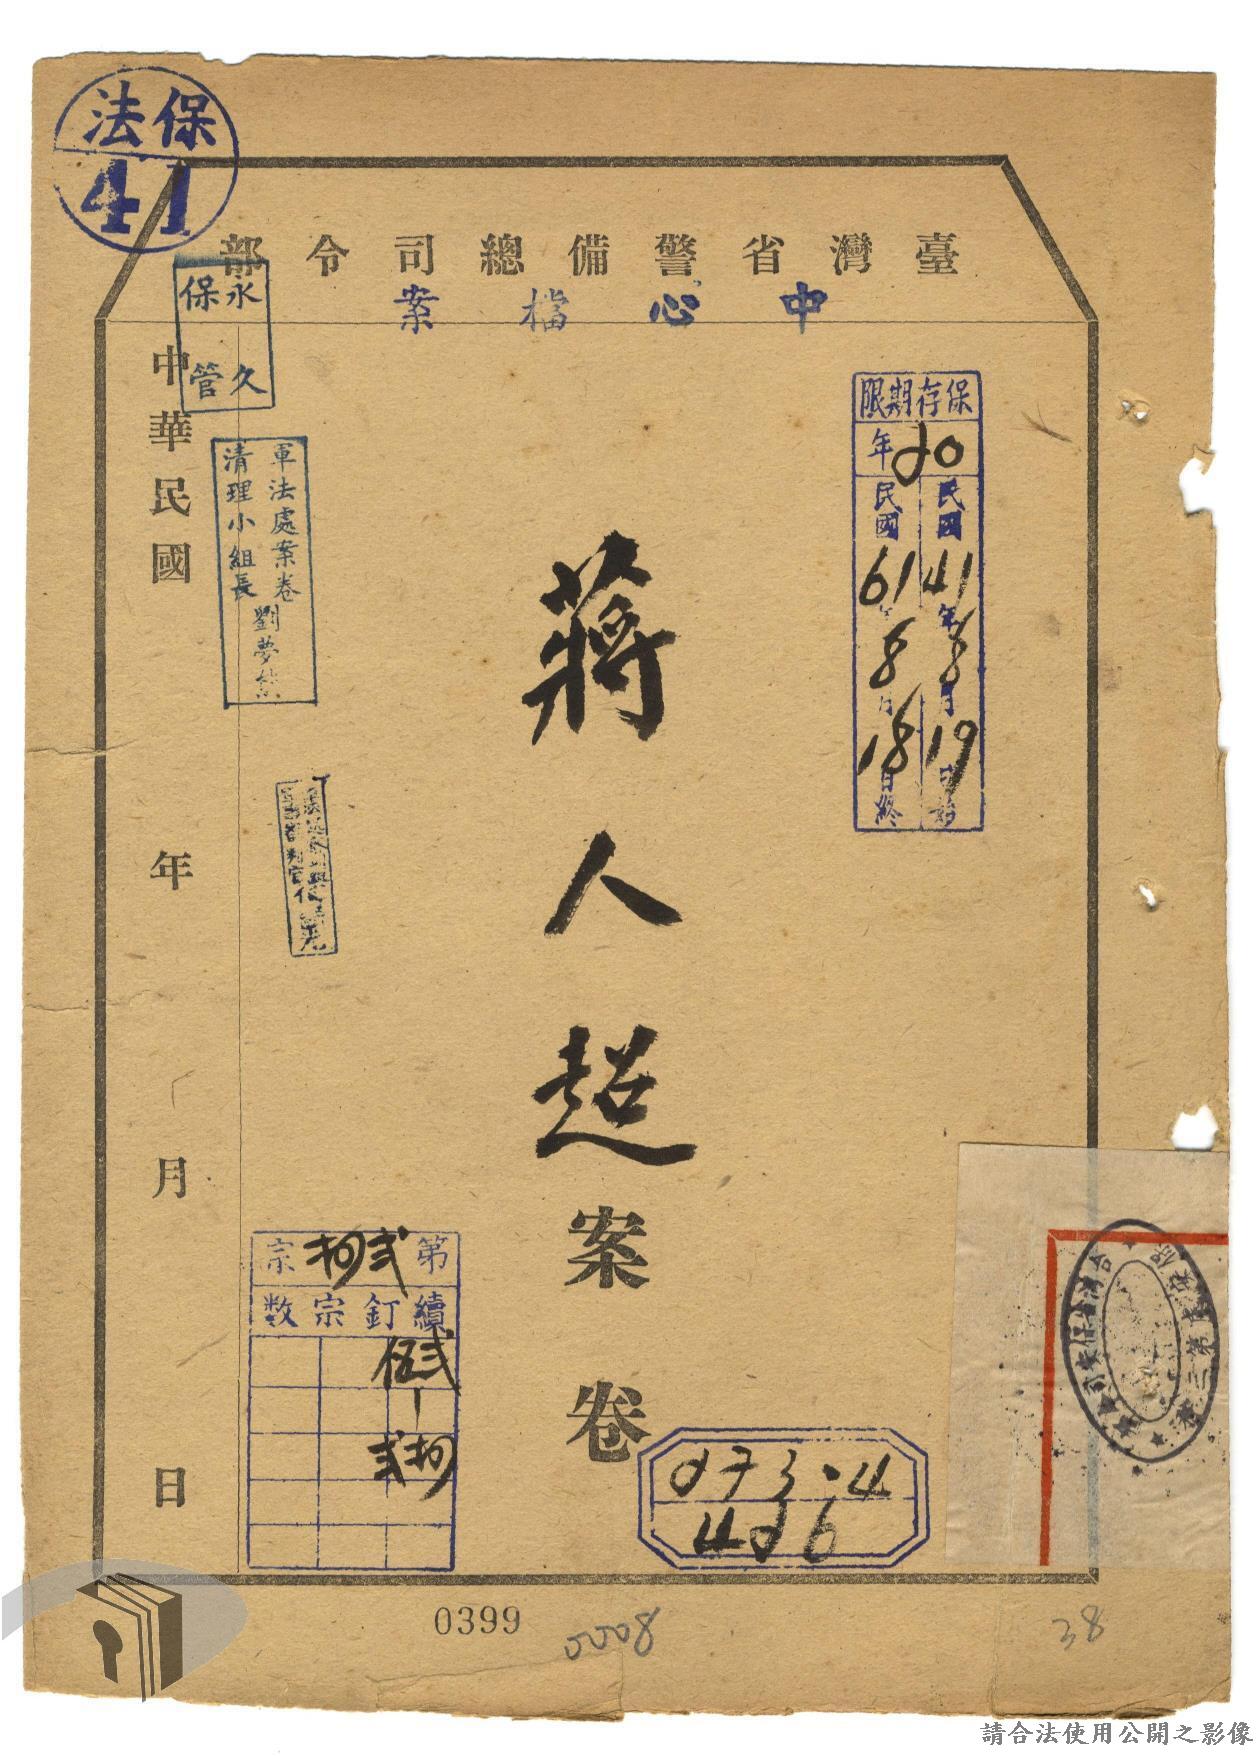 保法
41
臺灣省警備總司令部
中心檔案
永久保管
中華民國 年 月 日
軍法處案卷
清理小組長
保存期限
20年
民國41年8月19日始
民國61年8月18日終
蔣人超案卷
第貳拾宗
續釘宗數
貳伍
貳拾
273.4
426
0399
0008
38
請合法使用公開之影像